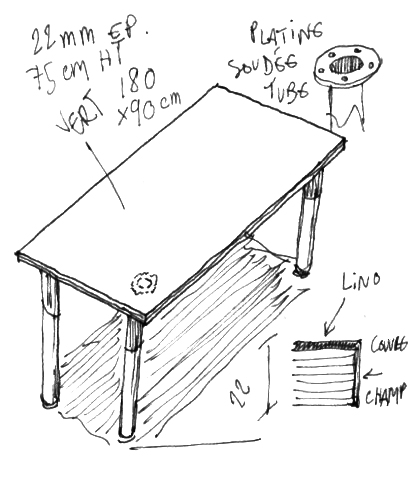 22mm EP.
75cm HT
180
x90cm
VERT
PLATINE
SOUDÉE
TUBE
LINO
CHAMP
22